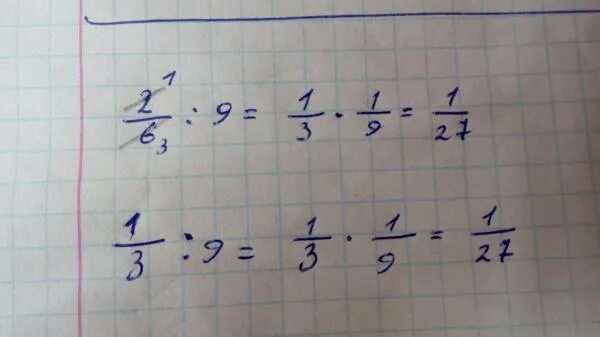 2/6 1 3 : 9 = 1/3 · 1/9 = 1/27
1/3 : 9 = 1/3 · 1/9 = 1/27